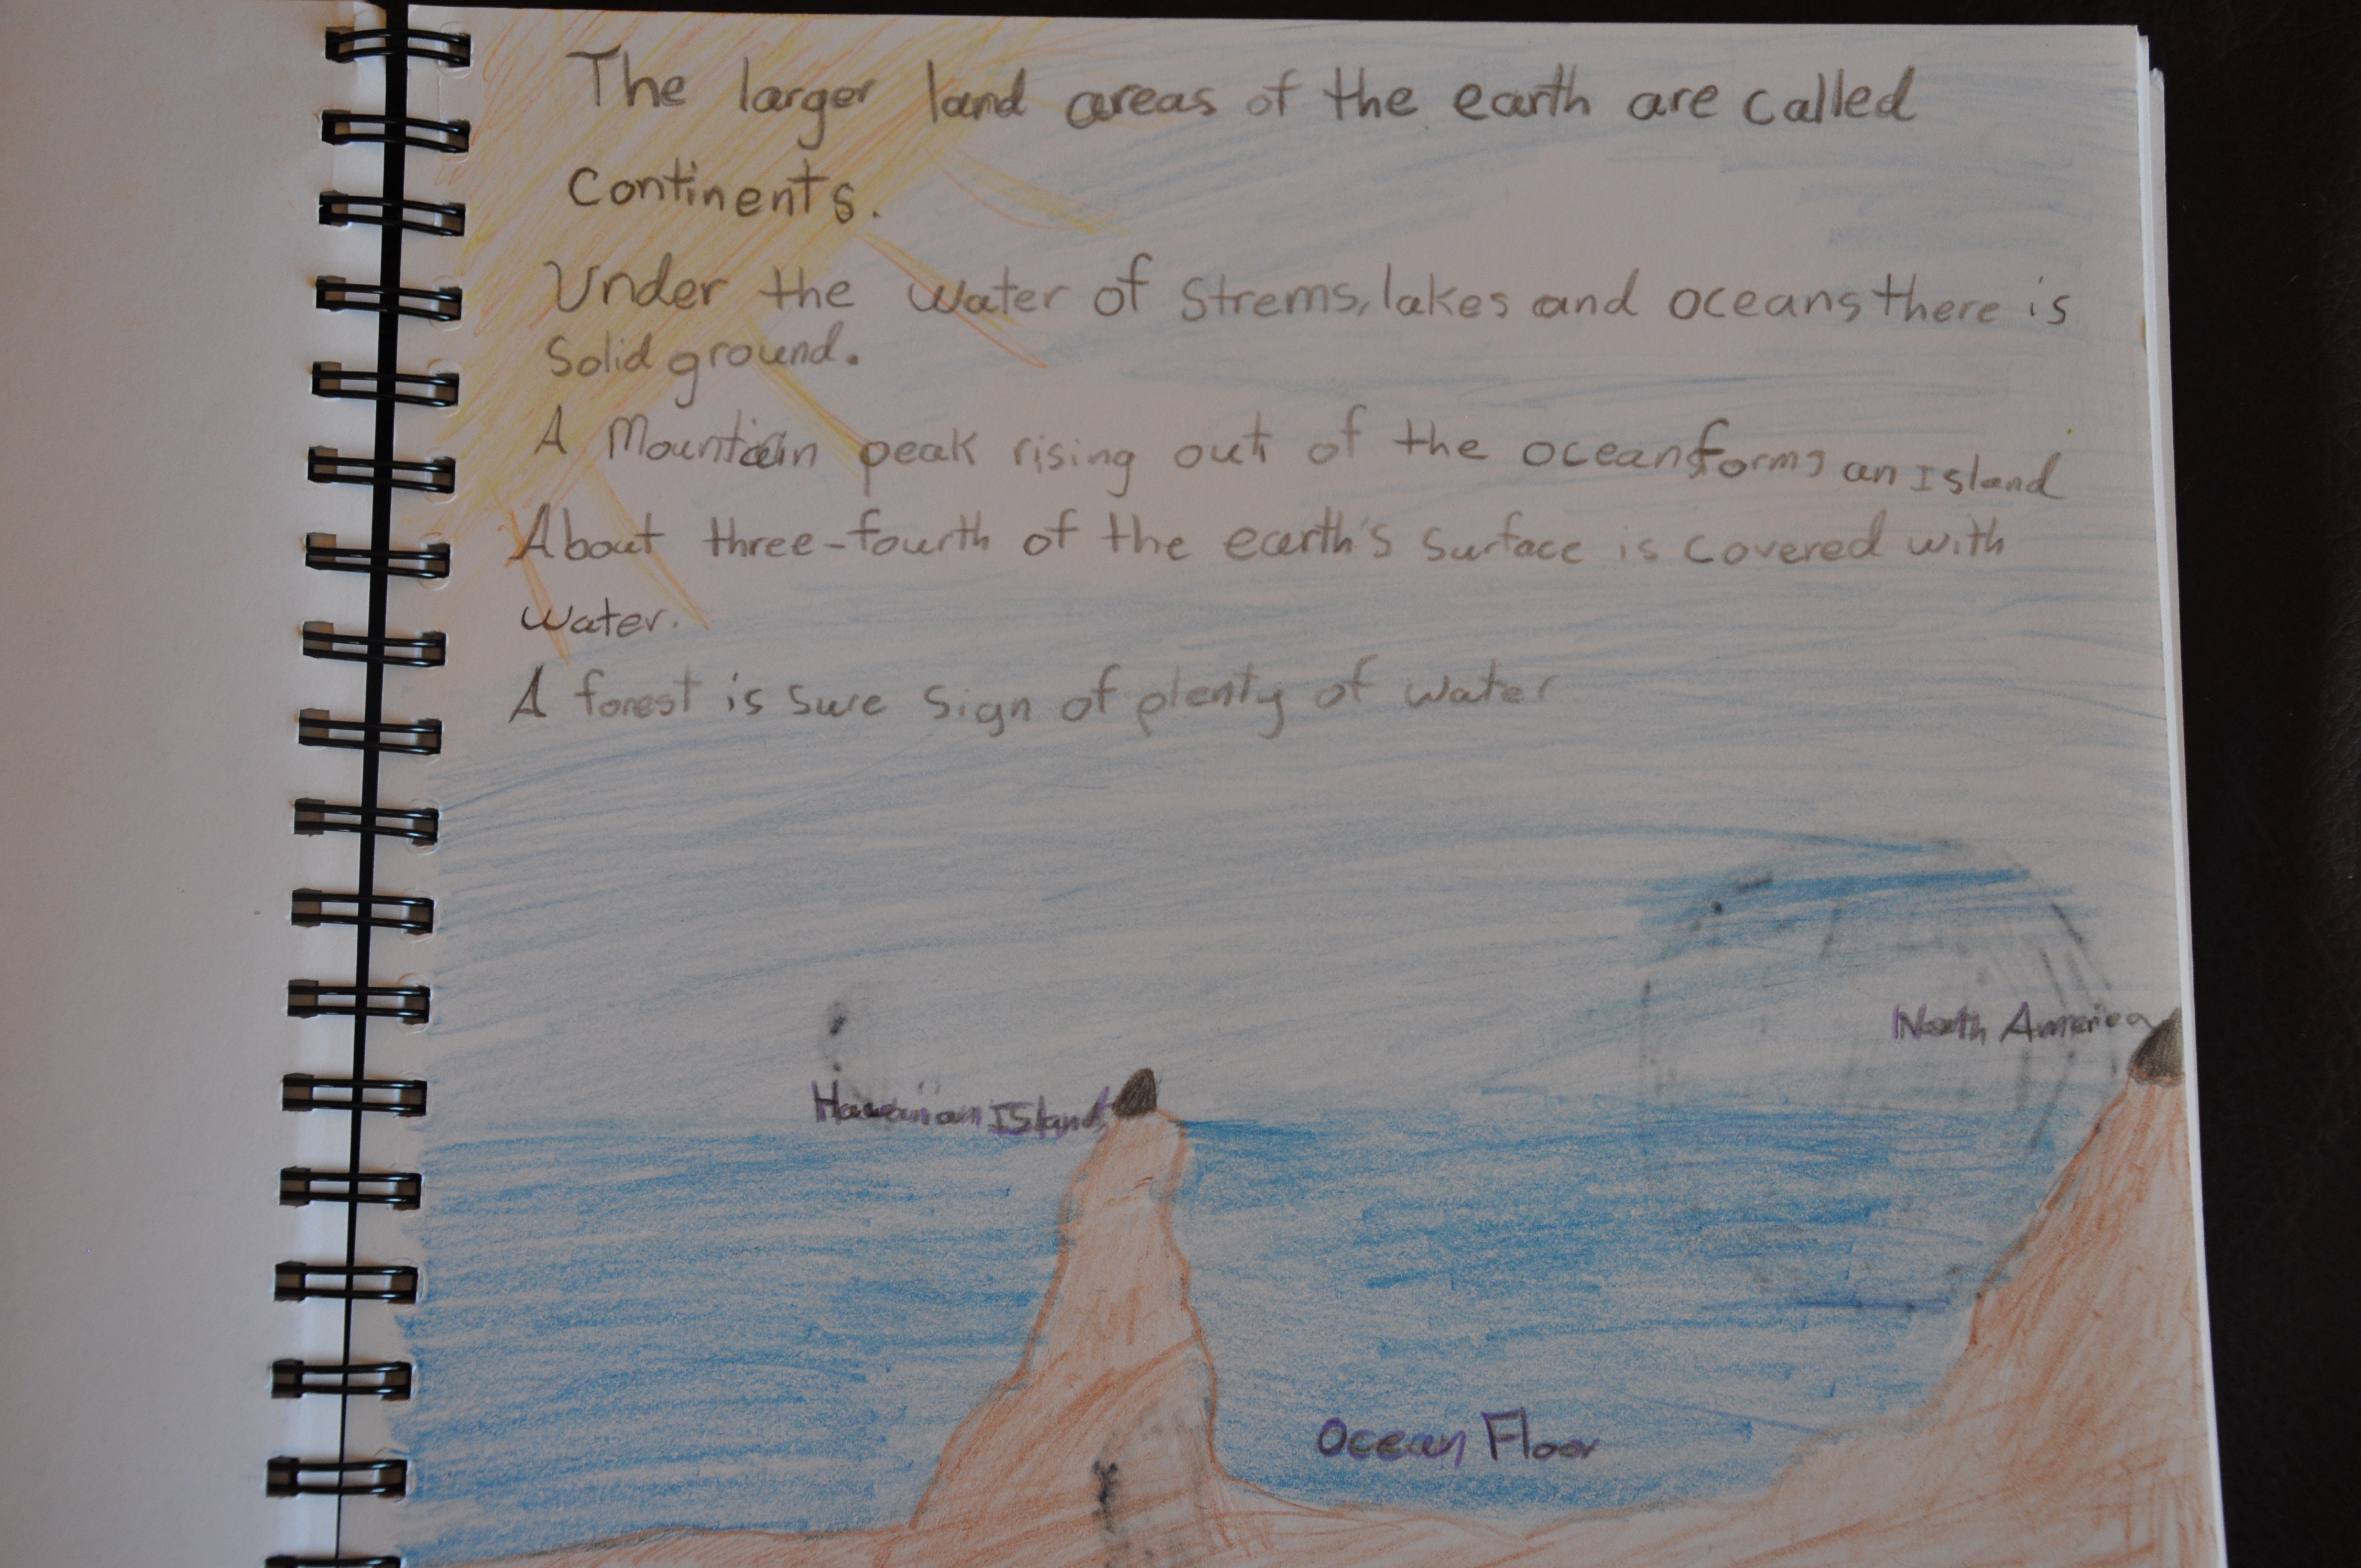 The larger land areas of the earth are called
continents.
Under the water of Strems, lakes and oceans there is
Solid ground.
A Mountain peak rising out of the ocean forms an Island
About three-fourth of the earth's surface is covered with
water.
A forest is sure sign of plenty of water
North America
Hawaiian Islands
Ocean Floor